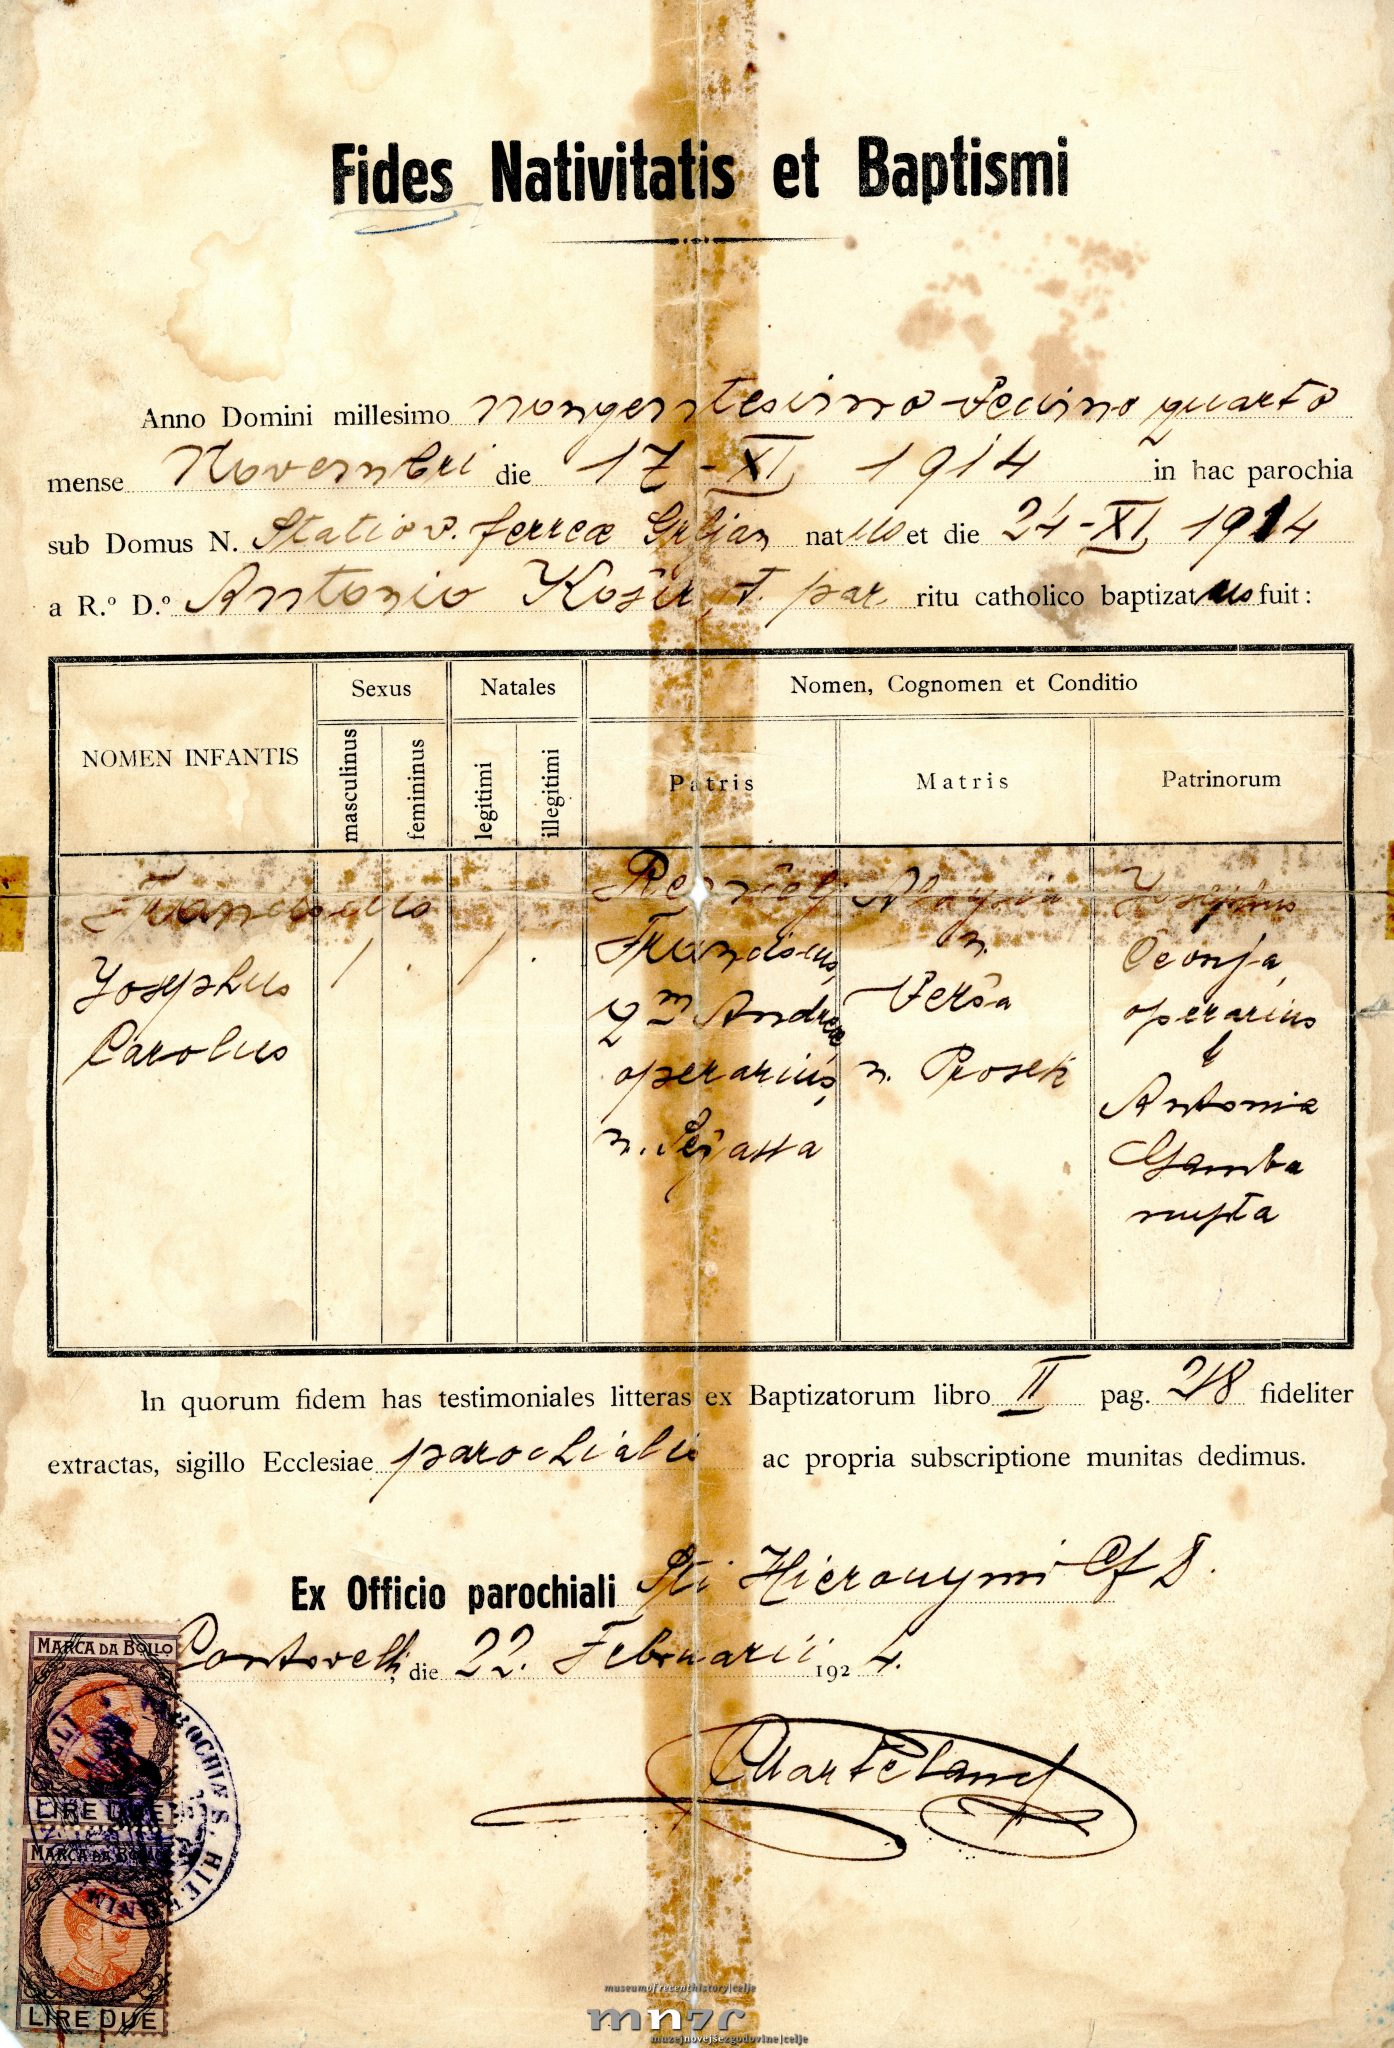 Fides Nativitatis et Baptismi
Anno Domini millesimo nongentesimo decimo quarto
mense Novembri die 17-XI 1914 in hac parochia
sub Domus N. ferreæ Grljan natus et die 24-XI 1914
a R.º D.º Antonio Košir, par. ritu catholico baptizatus fuit:
NOMEN INFANTIS
Sexus
masculinus
femininus
Natales
legitimi
illegitimi
Nomen, Cognomen et Conditio
Patris
Matris
Patrinorum
Franciscus
Josephus
Carolus
Franciscus,
qm Andreæ,
operarius,
n.
Aloysia
n.
Verša
n. Prosek
Josephus
operarius
&
Antonia
Gamba
nupta
In quorum fidem has testimoniales litteras ex Baptizatorum libro II pag. 218 fideliter
extractas, sigillo Ecclesiae parochialis ac propria subscriptione munitas dedimus.
Ex Officio parochiali Sti Hieronymi
Contovelli, die 22. Februarii 1924.
MARCA DA BOLLO
LIRE DUE
MARCA DA BOLLO
LIRE DUE
museumofrecenthistory|celje
mnzc
muzejnovejšezgodovine|celje